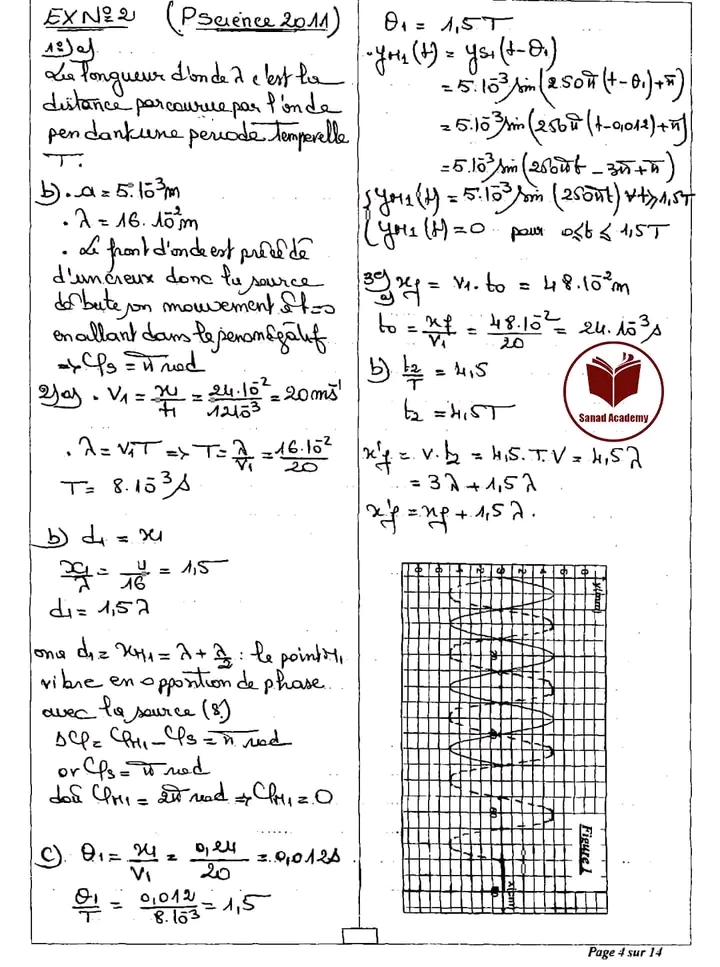 EX N°2 (PScience 2011)
1°) a)
La longueur d'onde λ c'est la
distance parcourue par l'onde
pendant une période Temporelle
T.
b) • a = 5.10⁻³m
• λ = 16.10⁻²m
• Le front d'onde est précédé
d'un creux donc la source
débute son mouvement à t=0
en allant dans le sens négatif
⇒ φs = π rad
2) a) • V1 = x1/t1 = 24.10⁻²/12.10⁻³ = 20 ms⁻¹
• λ = V1T ⇒ T = λ/V1 = 16.10⁻²/20
T = 8.10⁻³s
b) d1 = x1
x1/λ = /16 = 1,5
d1 = 1,5λ
d1 = xM1 = λ + λ/2 : le point M1
vibre en opposition de phase
avec la source (S)
Δφ = φM1 - φs = π rad
or φs = π rad
d'où φM1 = 2π rad ⇒ φM1 = 0
c) θ1 = x1/V1 = 0,24/20 = 0,012s
θ1/T = 0,012/8.10⁻³ = 1,5
θ1 = 1,5T
• yM1(t) = yS1(t-θ1)
= 5.10⁻³ sin(250π(t-θ1)+π)
= 5.10⁻³ sin(250π(t-0,012)+π)
= 5.10⁻³ sin(250πt - 3π + π)
{ yM1(t) = 5.10⁻³ sin(250πt) ∀t ≥ 1,5T
{ yM1(t) = 0 pour 0 ≤ t ≤ 1,5T
3°) a) xf = V1.t0 = 48.10⁻²m
t0 = xf/V1 = 48.10⁻²/20 = 24.10⁻³s
b) t2/T = 4,5
t2 = 4,5T
x'f = V.t2 = 4,5.T.V = 4,5λ
= 3λ + 1,5λ
x'f = xf + 1,5λ.
Sanad Academy
y(mm)
8
6
4
2
0
2
4
6
8
20
40
60
80
x(cm)
Figure 1
Page 4 sur 14